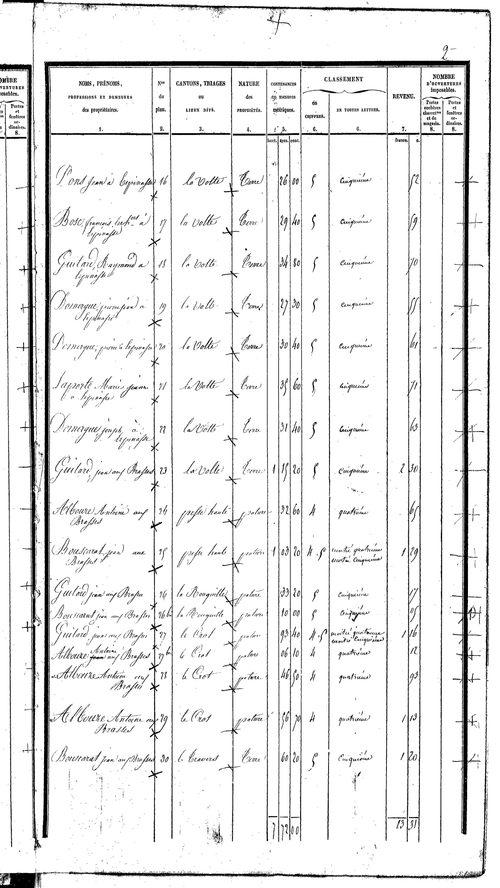 2
NOMS, PRÉNOMS, PROFESSIONS ET DEMEURES des propriétaires. 1.
Nos du plan. 2.
CANTONS, TRIAGES OU LIEUX DITS. 3.
NATURE des PROPRIÉTÉS. 4.
CONTENANCES en mesures métriques. 5.
CLASSEMENT
en CHIFFRES. 6.
EN TOUTES LETTRES. 6.
REVENU. 7.
NOMBRE D'OUVERTURES imposables.
Portes cochères charret.es et de magasin. 8.
Portes et fenêtres ordinaires. 8.
hect. ares. cent. francs. c.
Pons jean à lepinasse 16 la Volte terre 26 00 5 cinquième 52
Bosc françois à lepinasse 17 la Volte terre 29 40 5 cinquième 59
Guitard Raymond à lepinasse 18 la Volte terre 34 80 5 cinquième 70
Domergue à lepinasse 19 la Volte terre 27 30 5 cinquième 55
Domergue pierre à lepinasse 20 la Volte terre 30 40 5 cinquième 61
Laporte Marie jeanne à lepinasse 21 la Volte terre 35 60 5 cinquième 71
Domergue joseph à lepinasse 22 la Volte terre 31 40 5 cinquième 63
Guitard jean aux Brasses 23 la Volte terre 1 15 20 5 cinquième 2 30
Albouze Antoine aux Brasses 24 pature 32 60 4 quatrième 65
Bouscarat jean aux Brasses 25 pature 1 03 20 4.5 moitié quatrième moitié cinquième 1 29
Guitard jean aux Brasses 26 pature 33 20 5 cinquième 17
Bouscarat jean aux Brasses 26 bis pature 10 00 5 cinquième 05
Guitard jean aux Brasses 27 le Crot pature 93 40 4.5 moitié quatrième moitié cinquième 1 16
Albouze Antoine aux Brasses 27 b le Crot pature 06 10 4 quatrième 12
Albouze Antoine aux Brasses 28 le Crot pature 46 50 4 quatrième 93
Albouze Antoine aux Brasses 29 le Crot pature 56 70 4 quatrième 1 13
Bouscarat jean aux Brasses 30 le travers terre 60 20 5 cinquième 1 20
7 72 00 13 31